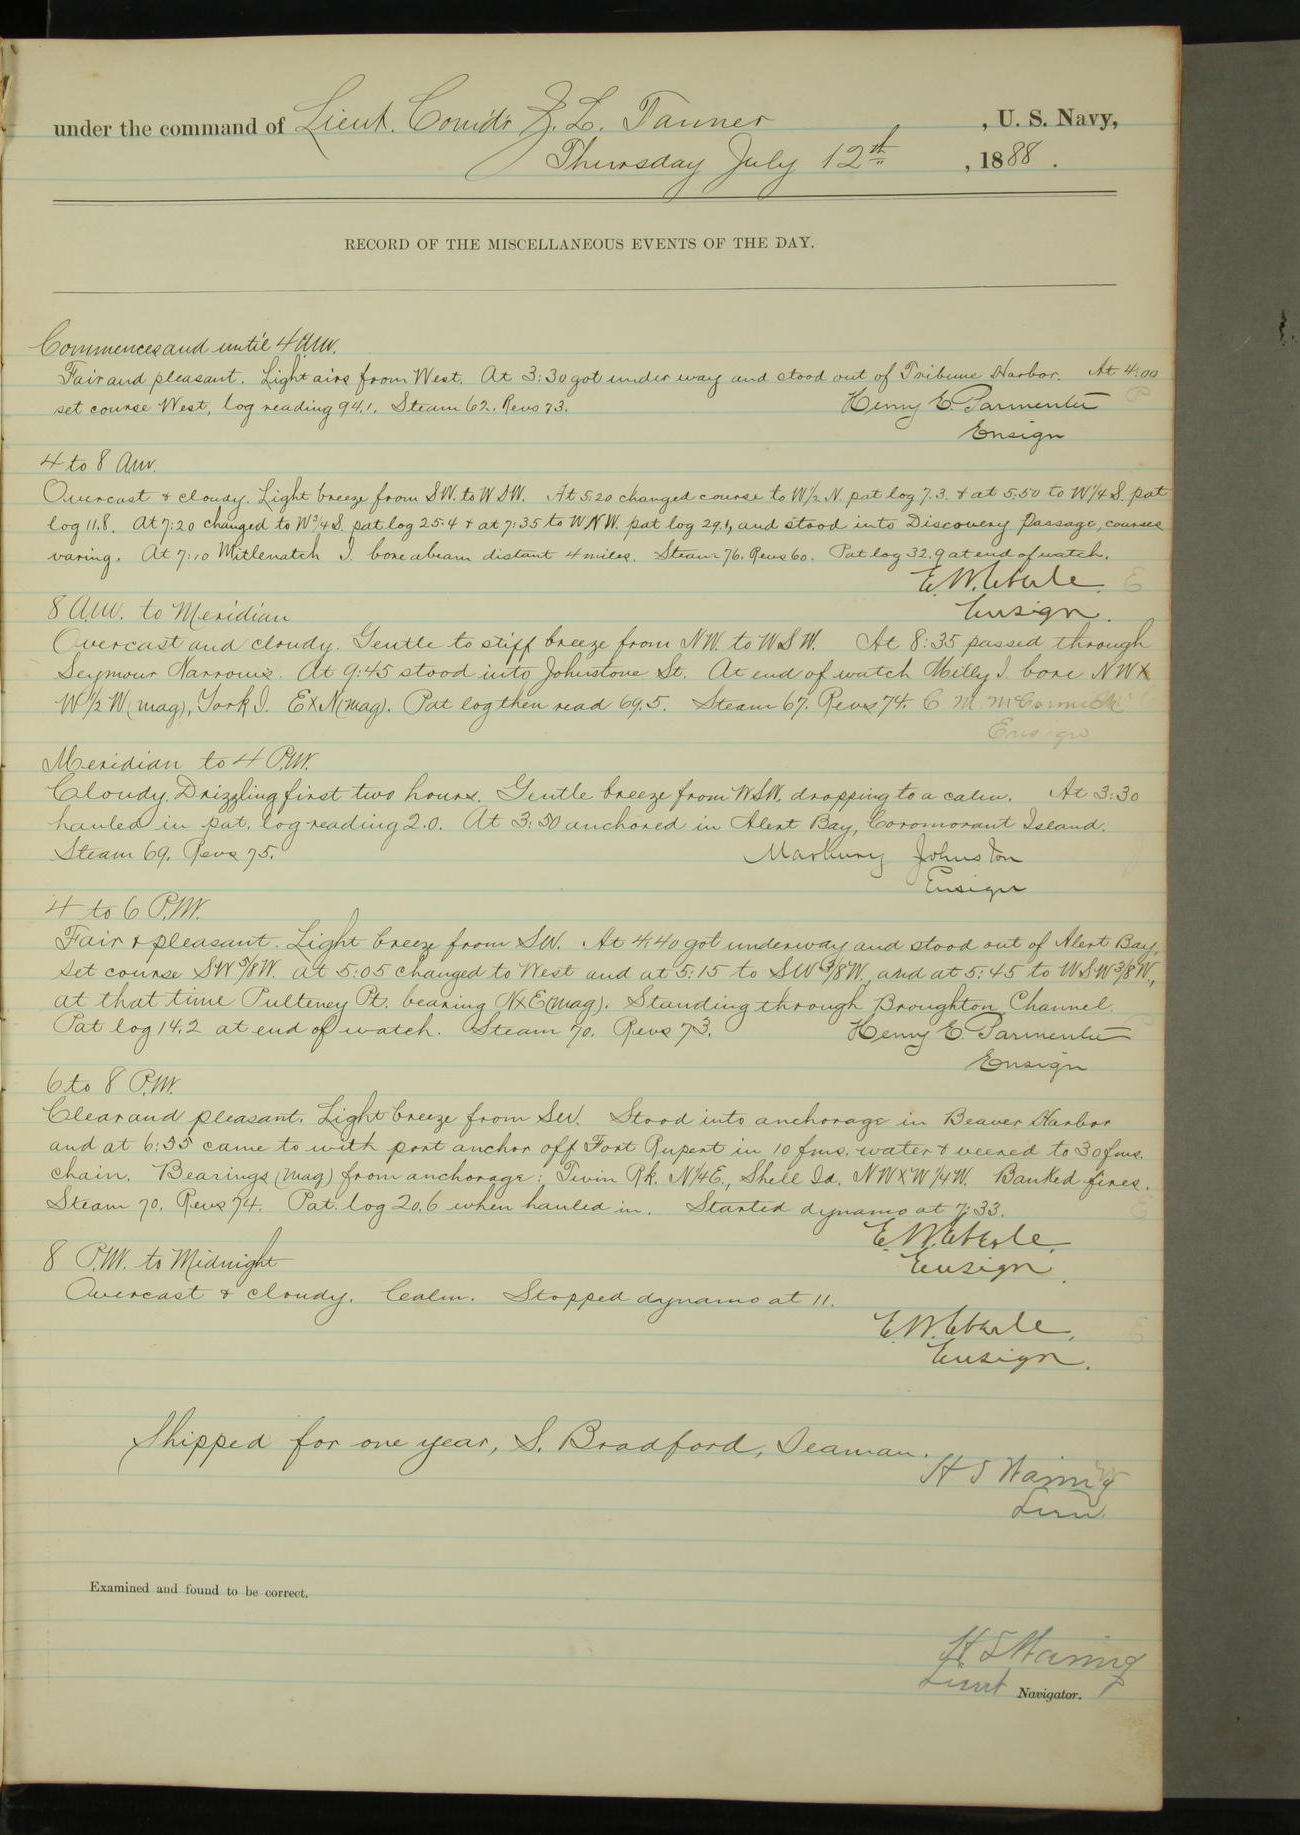 under the command of Lieut. Comdr Z. L. Tanner, U. S. Navy,
Thursday July 12th, 1888.
RECORD OF THE MISCELLANEOUS EVENTS OF THE DAY.
Commences and until 4 A.M.
Fair and pleasant. Light airs from West. At 3:30 got under way and stood out of Tribune Harbor. At 4:00
set course West, log reading 94.1. Steam 62. Revs 73. Henry E. Parmenter
Ensign
4 to 8 A.M.
Overcast & cloudy. Light breeze from SW. to WSW. At 5:20 changed course to W1/2 N. pat log 7.3. & at 5:50 to W1/4 S. pat
log 11.8. At 7:20 changed to W3/4 S. pat log 25.4 & at 7:35 to WNW. pat log 29.1, and stood into Discovery Passage, courses
varing. At 7:10 Mitlenatch I. bore abeam distant 4 miles. Steam 76. Revs 60. Pat log 32.9 at end of watch.
E. W. Eberle.
Ensign.
8 A.M. to Meridian
Overcast and cloudy. Gentle to stiff breeze from NW. to WSW. At 8:35 passed through
Seymour Narrows. At 9:45 stood into Johnstone St. At end of watch Milly I. bore NWx
W 1/2 W (mag), York I. ExN (mag). Pat log then read 69.5. Steam 67. Revs 74. C M McCormick
Ensign
Meridian to 4 P.M.
Cloudy. Drizzling first two hours. Gentle breeze from WSW. dropping to a calm. At 3:30
hauled in pat. log reading 2.0. At 3:50 anchored in Alert Bay, Coromorant Island.
Steam 69. Revs 75. Marbury Johnston
Ensign
4 to 6 P.M.
Fair & pleasant. Light breeze from SW. At 4:40 got underway and stood out of Alert Bay,
set course SW 5/8 W. at 5:05 changed to West and at 5:15 to SW 3/8 W., and at 5:45 to WSW 3/8 W.,
at that time Pulteney Pt. bearing NxE (mag). Standing through Broughton Channel.
Pat log 14.2 at end of watch. Steam 70. Revs 73. Henry E. Parmenter
Ensign
6 to 8 P.M.
Clear and pleasant. Light breeze from SW. Stood into anchorage in Beaver Harbor
and at 6:35 came to with port anchor off Fort Rupert in 10 fms. water & veered to 30 fms.
chain. Bearings (mag) from anchorage: Twin Rk. N1/4E., Shell Id. NWxW 1/4 W. Banked fires.
Steam 70. Revs 74. Pat. log 20.6 when hauled in. Started dynamo at 7:33.
E. W. Eberle.
Ensign.
8 P.M. to Midnight
Overcast & cloudy. Calm. Stopped dynamo at 11.
E. W. Eberle,
Ensign.
Shipped for one year, S. Bradford, Seaman.
H S Waring
Lieut
Examined and found to be correct.
H S Waring
Lieut Navigator.